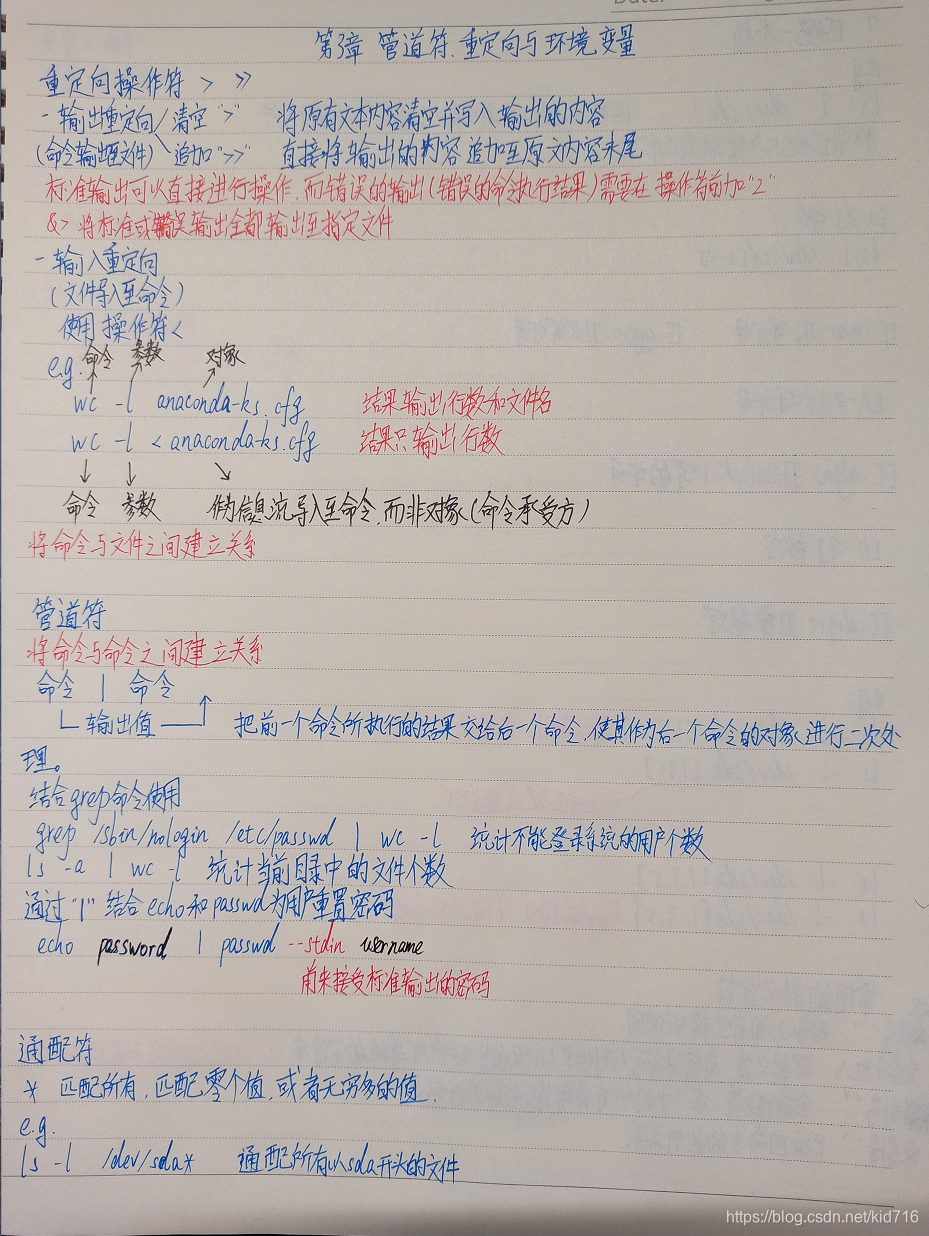 Date:
第3章 管道符.重定向与环境变量
重定向操作符 > >>
- 输出重定向/清空 ">" 将原有文本内容清空并写入输出的内容
(命令输出至文件)\追加">>" 直接将输出的内容追加至原文内容末尾
标准输出可以直接进行操作,而错误的输出(错误的命令执行结果)需要在操作符前加"2"
&> 将标准或错误输出全都输出至指定文件
- 输入重定向
(文件导入至命令)
使用操作符<
e.g. 命令 参数 对象
wc -l anaconda-ks.cfg 结果输出行数和文件名
wc -l < anaconda-ks.cfg 结果只输出行数
命令 参数 作为信息流导入至命令,而非对象(命令承受方)
将命令与文件之间建立关系
管道符
将命令与命令之间建立关系
命令 | 命令
输出值 把前一个命令所执行的结果交给后一个命令,使其作为后一个命令的对象进行二次处
理。
结合grep命令使用
grep /sbin/nologin /etc/passwd | wc -l 统计不能登录系统的用户个数
ls -a | wc -l 统计当前目录中的文件个数
通过"|"结合echo和passwd为用户重置密码
echo password | passwd --stdin username
用来接受标准输出的密码
通配符
* 匹配所有,匹配零个值,或者无穷多的值.
e.g.
ls -l /dev/sda* 通配所有以sda开头的文件
https://blog.csdn.net/kid716